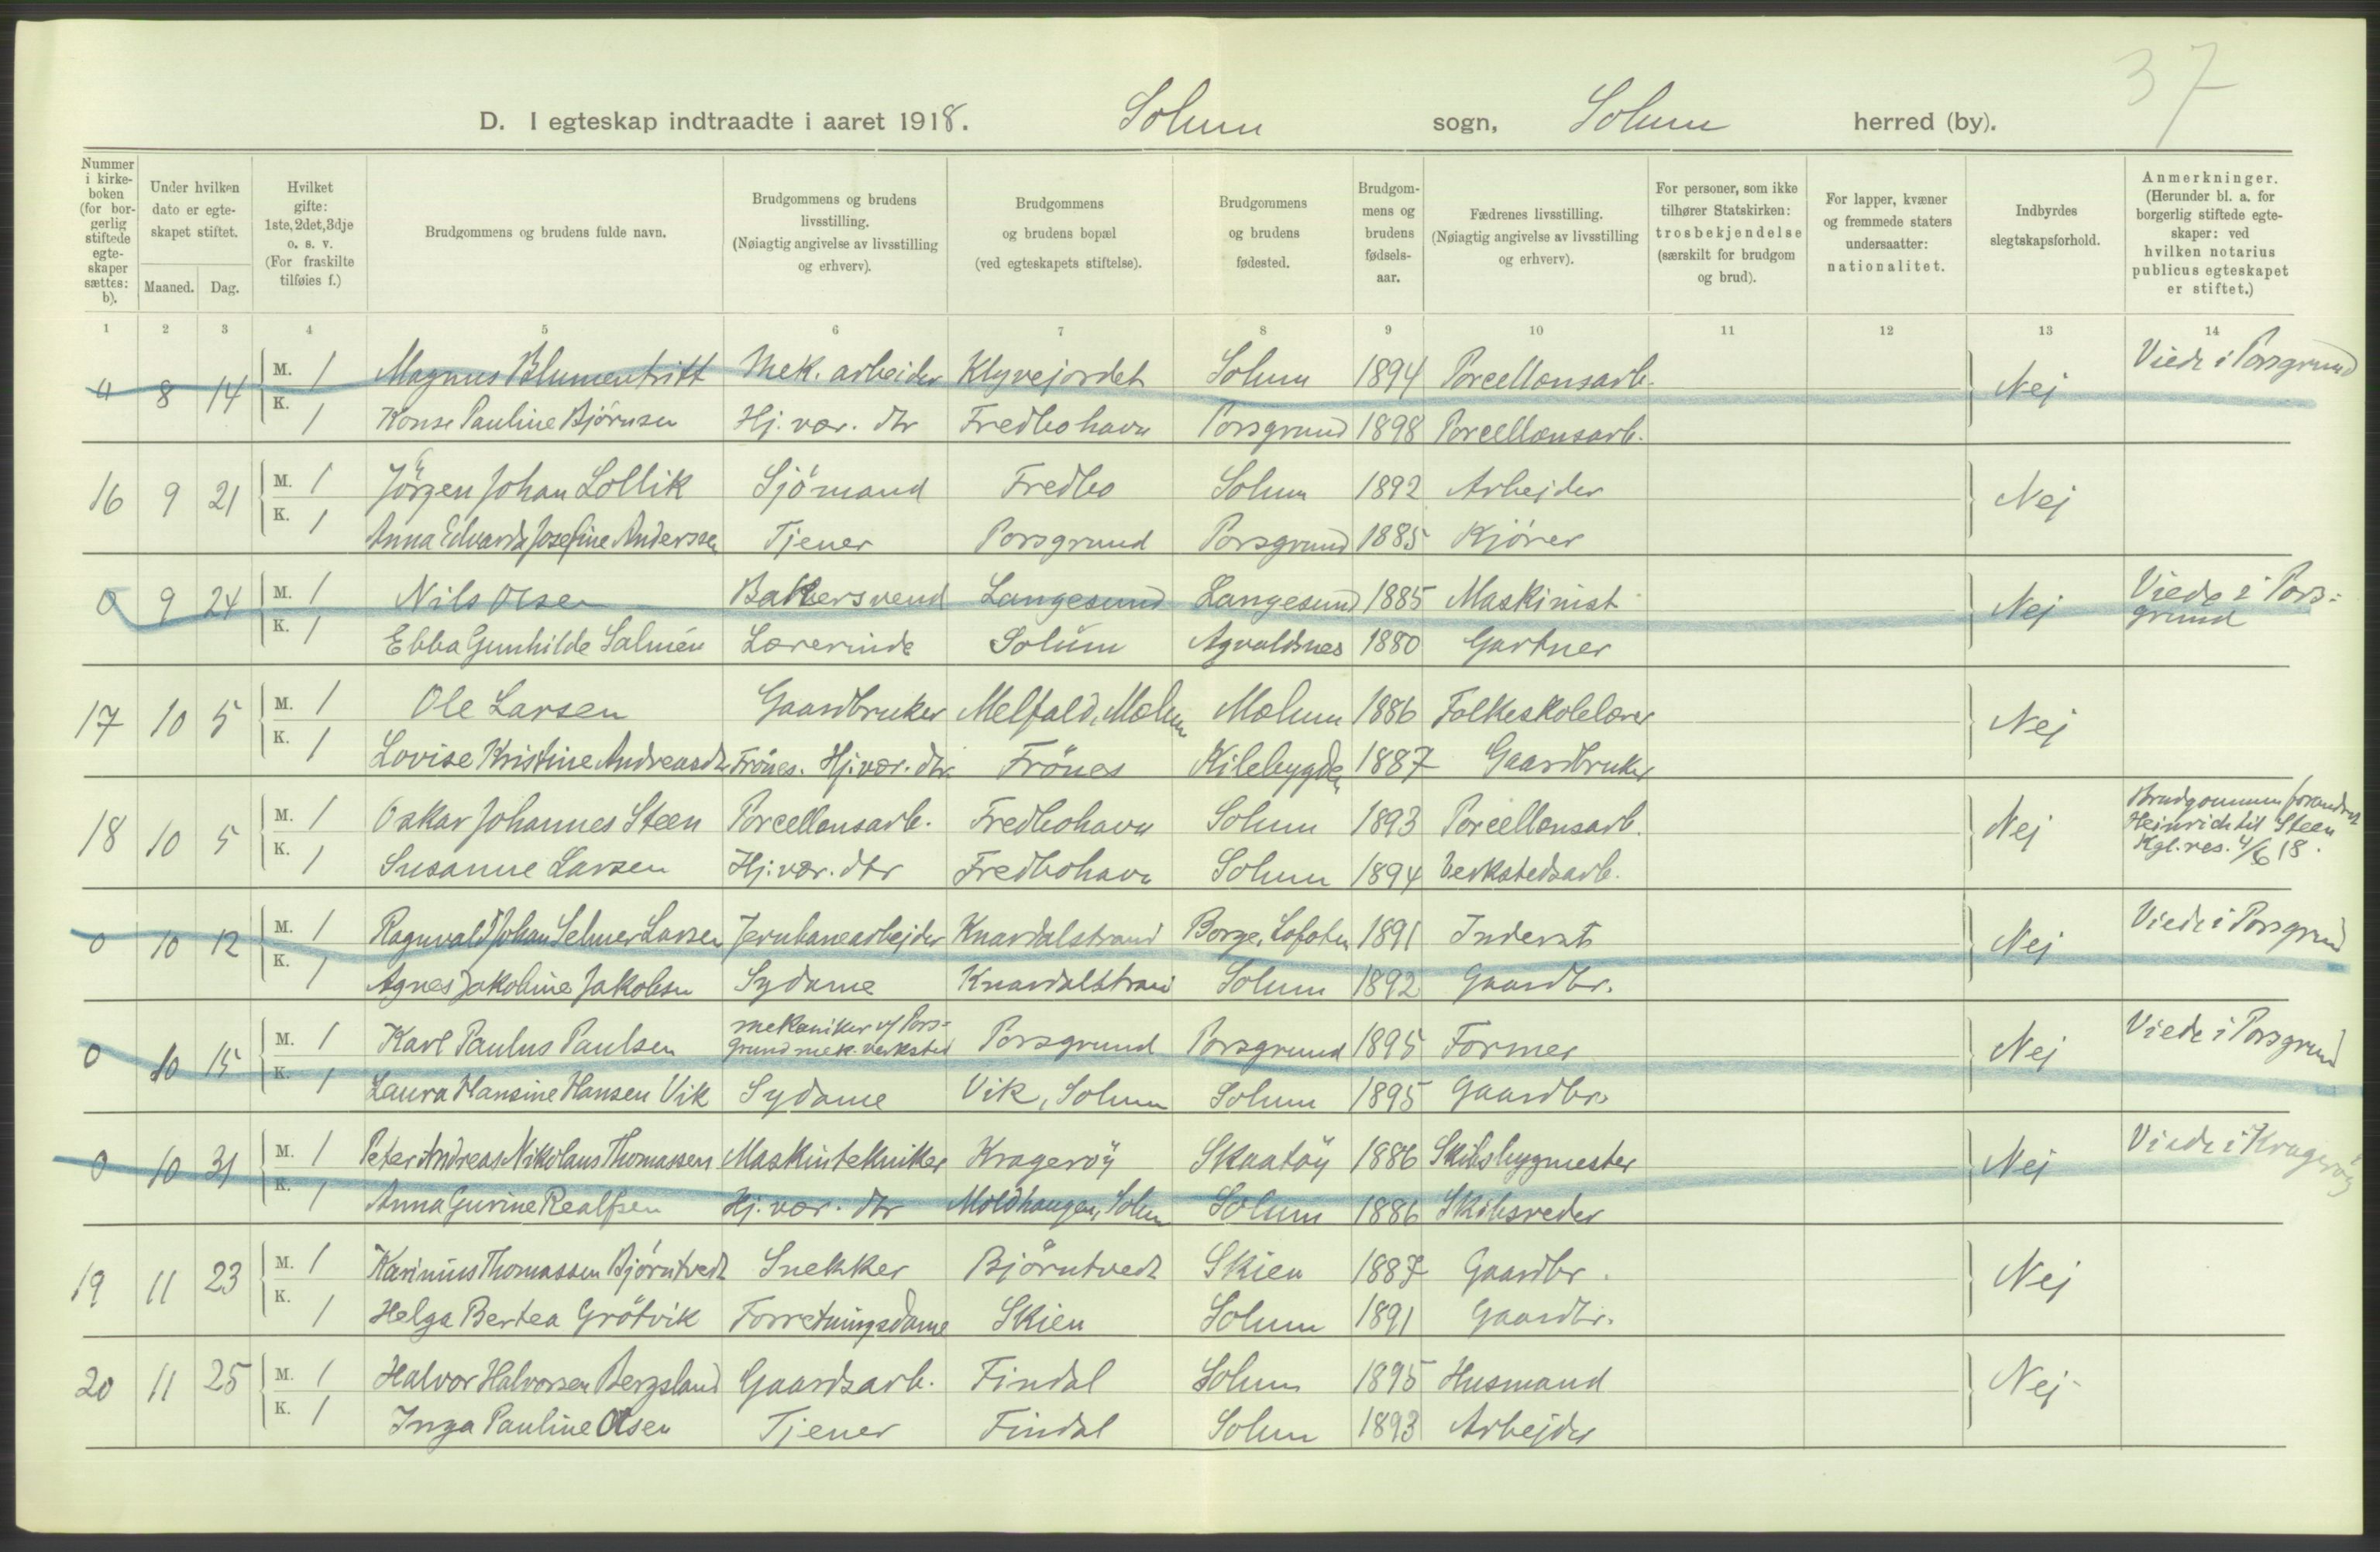 37
D. I egteskap indtraadte i aaret 1918. Solum sogn, Solum herred (by).
Nummer i kirke-boken (for bor-gerlig stiftede egte-skaper sættes: b).
Under hvilken dato er egte-skapet stiftet.
Maaned. Dag.
Hvilket gifte: 1ste, 2det, 3dje o. s. v. (For fraskilte tilføies f.)
Brudgommens og brudens fulde navn.
Brudgommens og brudens livsstilling. (Nøiagtig angivelse av livsstilling og erhverv).
Brudgommens og brudens bopæl (ved egteskapets stiftelse).
Brudgommens og brudens fødested.
Brudgom-mens og brudens fødsels-aar.
Fædrenes livsstilling. (Nøiagtig angivelse av livsstilling og erhverv).
For personer, som ikke tilhører Statskirken: trosbekjendelse (særskilt for brudgom og brud).
For lapper, kvæner og fremmede staters undersaatter: nationalitet.
Indbyrdes slegtskapsforhold.
Anmerkninger. (Herunder bl. a. for borgerlig stiftede egte-skaper: ved hvilken notarius publicus egteskapet er stiftet.)
1 2 3 4 5 6 7 8 9 10 11 12 13 14
8 14 M. 1 Magnus Blumentritt Mek. arbeider Klyvejordet Solum 1894 Porcellænsarb. Nej Viede i Porsgrund
K. 1 Pauline Bjørnsen Hj. vær. dtr Fredbohavn Porsgrund 1898 Porcellænsarb.
16 9 21 M. 1 Jörgen Johan Lollik Sjömand Fredbo Solum 1892 Arbejder Nej
K. 1 Anna Edvarda Josefine Anderssen Tjener Porsgrund Porsgrund 1885 Kjörer
0 9 24 M. 1 Nils Olsen Bakersvend Langesund Langesund 1885 Maskinist Nej Viede i Pors=
grund
K. 1 Ebba Gunhilde Salmén Lærerinde Solum Agvaldsnes 1880 Gartner
17 10 5 M. 1 Ole Larsen Gaardbruker Melfald, Mælum Mælum 1886 Folkeskolelærer Nej
K. 1 Lovise Kristine Andreasdtr Frönes. Hj. vær. dtr. Frönes Kilebygden 1887 Gaardbruker
18 10 5 M. 1 Oskar Johannes Steen Porcellænsarb. Fredbohavn Solum 1893 Porcellænsarb. Nej Brudgommen forandret
Heinrich til Steen
Kgl. res. 4/6 18.
K. 1 Susanne Larsen Hj. vær. dtr Fredbohavn Solum 1894 Verkstedsarb.
0 10 12 M. 1 Ragnvald Johan Selmer Larsen Jernbanearbejder Knardalstrand Borge, Lofoten 1891 Inderst Nej Viede i Porsgrund
K. 1 Agnes Jakobine Jakobsen Sydame Knardalstrand Solum 1892 Gaardbr.
0 10 15 M. 1 Karl Paulus Paulsen mekaniker v/ Pors=
grund mek. verksted Porsgrund Porsgrund 1895 Former Nej Viede i Porsgrund
K. 1 Laura Hansine Hansen Vik Sydame Vik, Solum Solum 1895 Gaardbr.
0 10 31 M. 1 Peter Andreas Nikolaus Thomassen Maskintekniker Kragerøy Skaatøy 1886 Skibsbygmester Nej Viede i Kragerøy
K. 1 Anna Gurine Realfsen Hj. vær. dtr Moldhaugen, Solum Solum 1886 Skibsreder
19 11 23 M. 1 Karinius Thomassen Bjørntvedt Snekker Bjørntvedt Skien 1887 Gaardbr. Nej
K. 1 Helga Bertea Grötvik Forretningsdame Skien Solum 1891 Gaardbr.
20 11 25 M. 1 Halvor Halvorsen Bergsland Gaardsarb. Findal Solum 1895 Husmand Nej
K. 1 Inga Pauline Olsen Tjener Findal Solum 1893 Arbejder